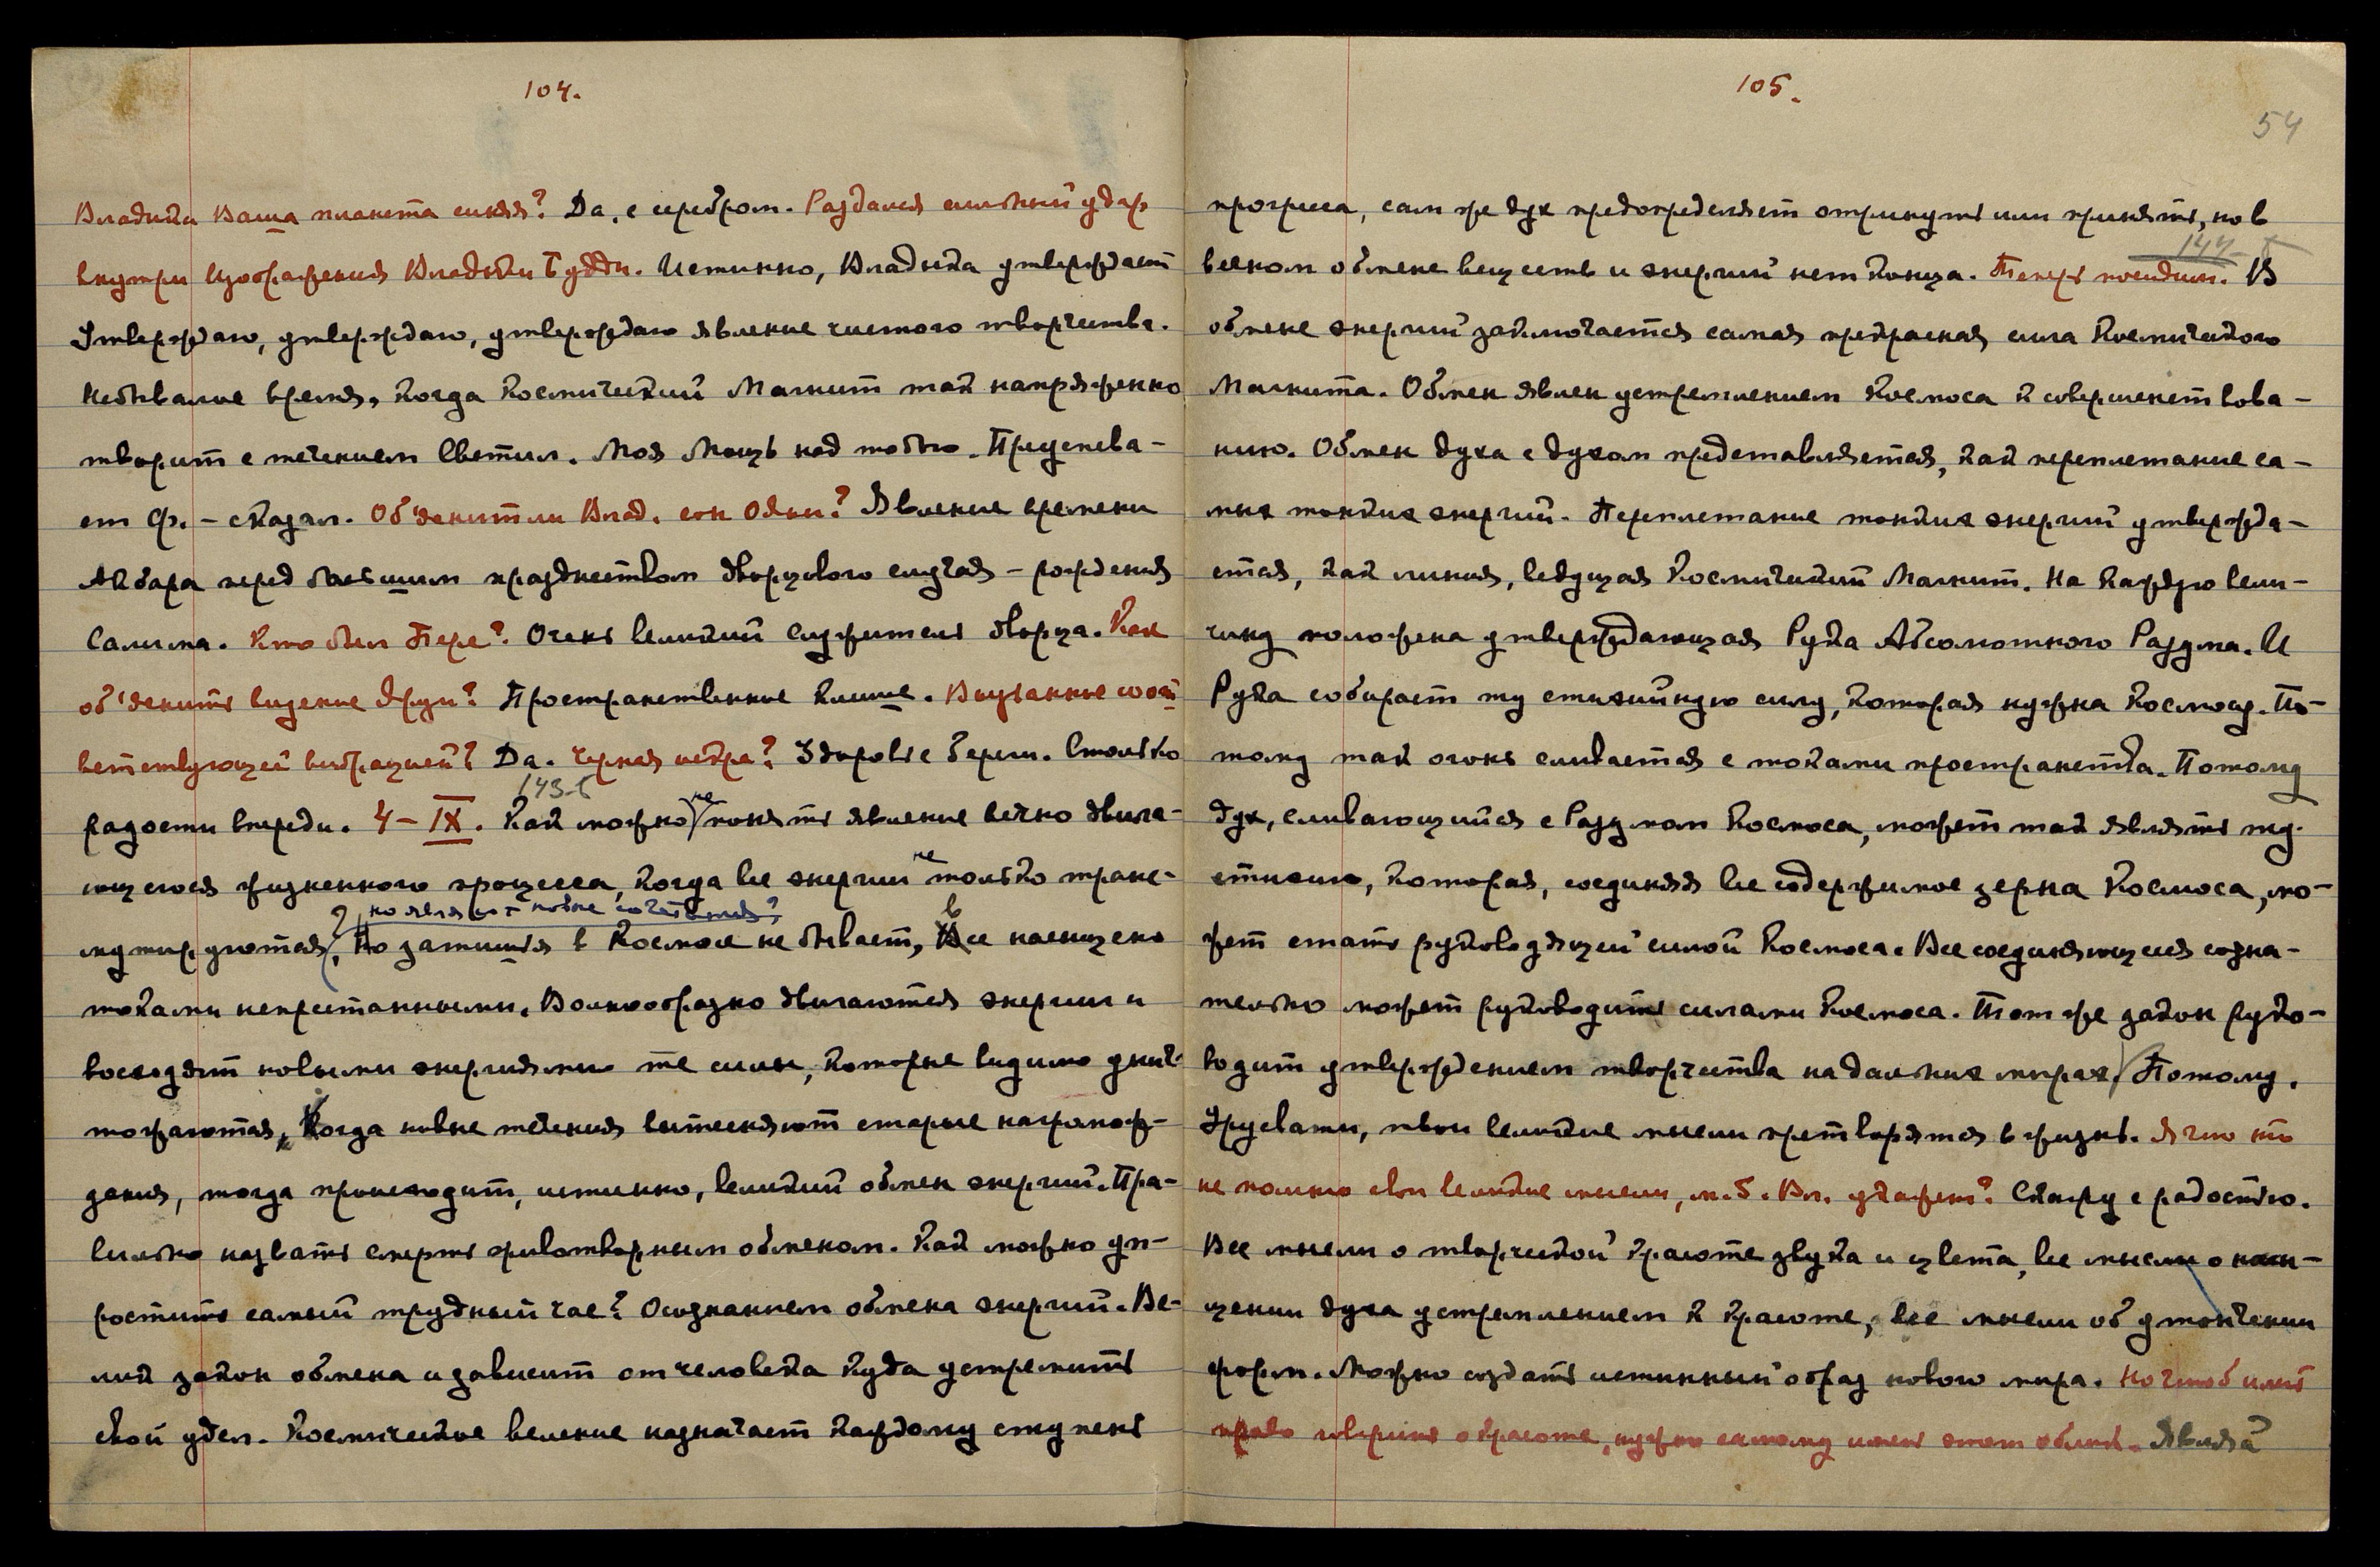 104.
Владыка Ваша планета синяя? Да, с серебром. Раздался сильный удар
внутри Изображения Владыки Будды. Истинно, Владыка утверждает
Утверждаю, утверждаю, утверждаю явление чистого творчества.
Небывалое время, когда Космический Магнит так напряженно
творит с течением Светил. Моя Мощь над тобою. Преуспева-
ет Ф. – сказал. Об'яснит ли Влад. сон Одны? Явление времени
Акбара перед бывшим празднеством дворцового случая – рождения
Салима. Кто был Пере? Очень великий служитель дворца. Как
об'яснить видение друзи? Пространственное клише. Вызванные соот
ветствующей вибрацией? Да. Черная искра? Здоровье береги. Столько
143-б
радости впереди. 4 – IX. Как можно не понять явление вечно двига-
ющегося жизненного процесса, когда все энергии не только транс-
но являют новые сочетания?
мутируются, Но затишья в Космосе не бывает, Все насыщено
токами непрестанными. Волнообразно двигаются энергии и
восходят новыми энергиями те силы, которые видимо унич-
тожаются, Когда новые течения вытесняют старые нагромож-
дения, тогда происходит, истинно, великий обмен энергий. Пра-
вильно назвать смерть животворным обменом. Как можно уп-
ростить самый трудный час? Осознанием обмена энергий. Ве-
лик закон обмена и зависит от человека куда устремить
свой удел. Космическое веление назначает каждому ступень
105.
54
прогресса, сам же дух предопределяет отринуть или принять, но в
144
всяком обмене веществ и энергий нет конца. Теперь посидим. В
обмене энергий заключается самая прекрасная сила Космического
Магнита. Обмен явлен устремлением Космоса к совершенствова-
нию. Обмен духа с духом представляется, как переплетание са-
мых тонких энергий. Переплетание тонких энергий утвержда-
ется, как линия, ведущая Космический Магнит. На каждую вели-
чину положена утверждающая Рука Абсолютного Разума. И
Рука собирает ту стихийную силу, которая нужна Космосу. По-
тому так огонь сливается с токами пространства. Потому
дух, сливающийся с Разумом Космоса, может так являть ту
стихию, которая, соединяя все содержимое зерна Космоса, мо-
жет стать руководящей силой Космоса. Все соединяющееся созна-
тельно может руководить силами Космоса. Тот же закон руко-
водит утверждением творчества на дальних мирах. Потому,
Урусвати, твои великие мысли претворятся в жизнь. Я что то
не помню свои великие мысли, м.б. Вл. укажет? Скажу с радостью.
Все мысли о творческой красоте звука и цвета, все мысли о насы-
щении духа устремлением к красоте, все мысли об утончении
форм. Можно создать истинный образ нового мира. Но чтоб иметь
право говорить о красоте, нужно самому иметь этот облик. Являя